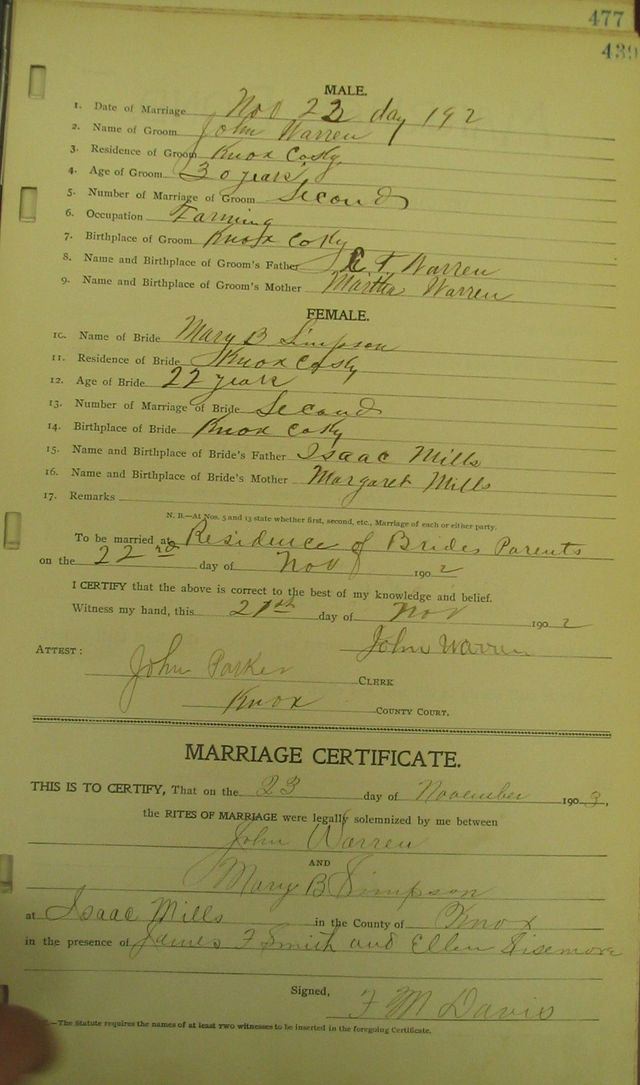 477
439
MALE.
1. Date of Marriage Nov 22 day 192
2. Name of Groom John Warren
3. Residence of Groom Knox Co Ky
4. Age of Groom 30 years
5. Number of Marriage of Groom Second
6. Occupation Farming
7. Birthplace of Groom Knox Co Ky
8. Name and Birthplace of Groom's Father T. Warren
9. Name and Birthplace of Groom's Mother Martha Warren
FEMALE.
10. Name of Bride Mary B Simpson
11. Residence of Bride Knox Co Ky
12. Age of Bride 22 years
13. Number of Marriage of Bride Second
14. Birthplace of Bride Knox Co Ky
15. Name and Birthplace of Bride's Father Isaac Mills
16. Name and Birthplace of Bride's Mother Margaret Mills
17. Remarks
N. B.—At Nos. 5 and 13 state whether first, second, etc., Marriage of each or either party.
To be married at Residence of Brides Parents
on the 22nd day of Nov 1902
I CERTIFY that the above is correct to the best of my knowledge and belief.
Witness my hand, this 21th day of Nov 1902
John Warren
ATTEST:
John Parker CLERK
Knox COUNTY COURT.
MARRIAGE CERTIFICATE.
THIS IS TO CERTIFY, That on the 23 day of November 1903,
the RITES OF MARRIAGE were legally solemnized by me between
John Warren
AND
Mary B Simpson
at Isaac Mills in the County of Knox
in the presence of James F Smith and Ellen Sisemore
Signed,
F M Davis
—The Statute requires the names of at least two witnesses to be inserted in the foregoing Certificate.